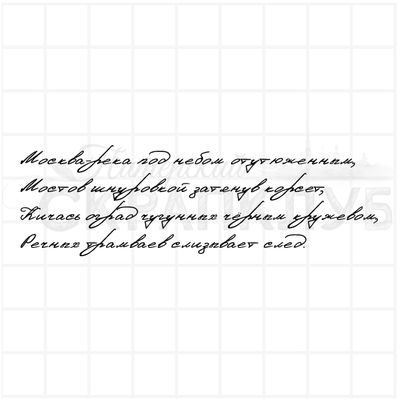 Москва-река под небом отутюженным,
Мостов шнуровкой затянув корсет,
Кичась оград чугунных чёрным кружевом,
Речных трамваев слизывает след.
Питерский
СКРАПКЛУБ